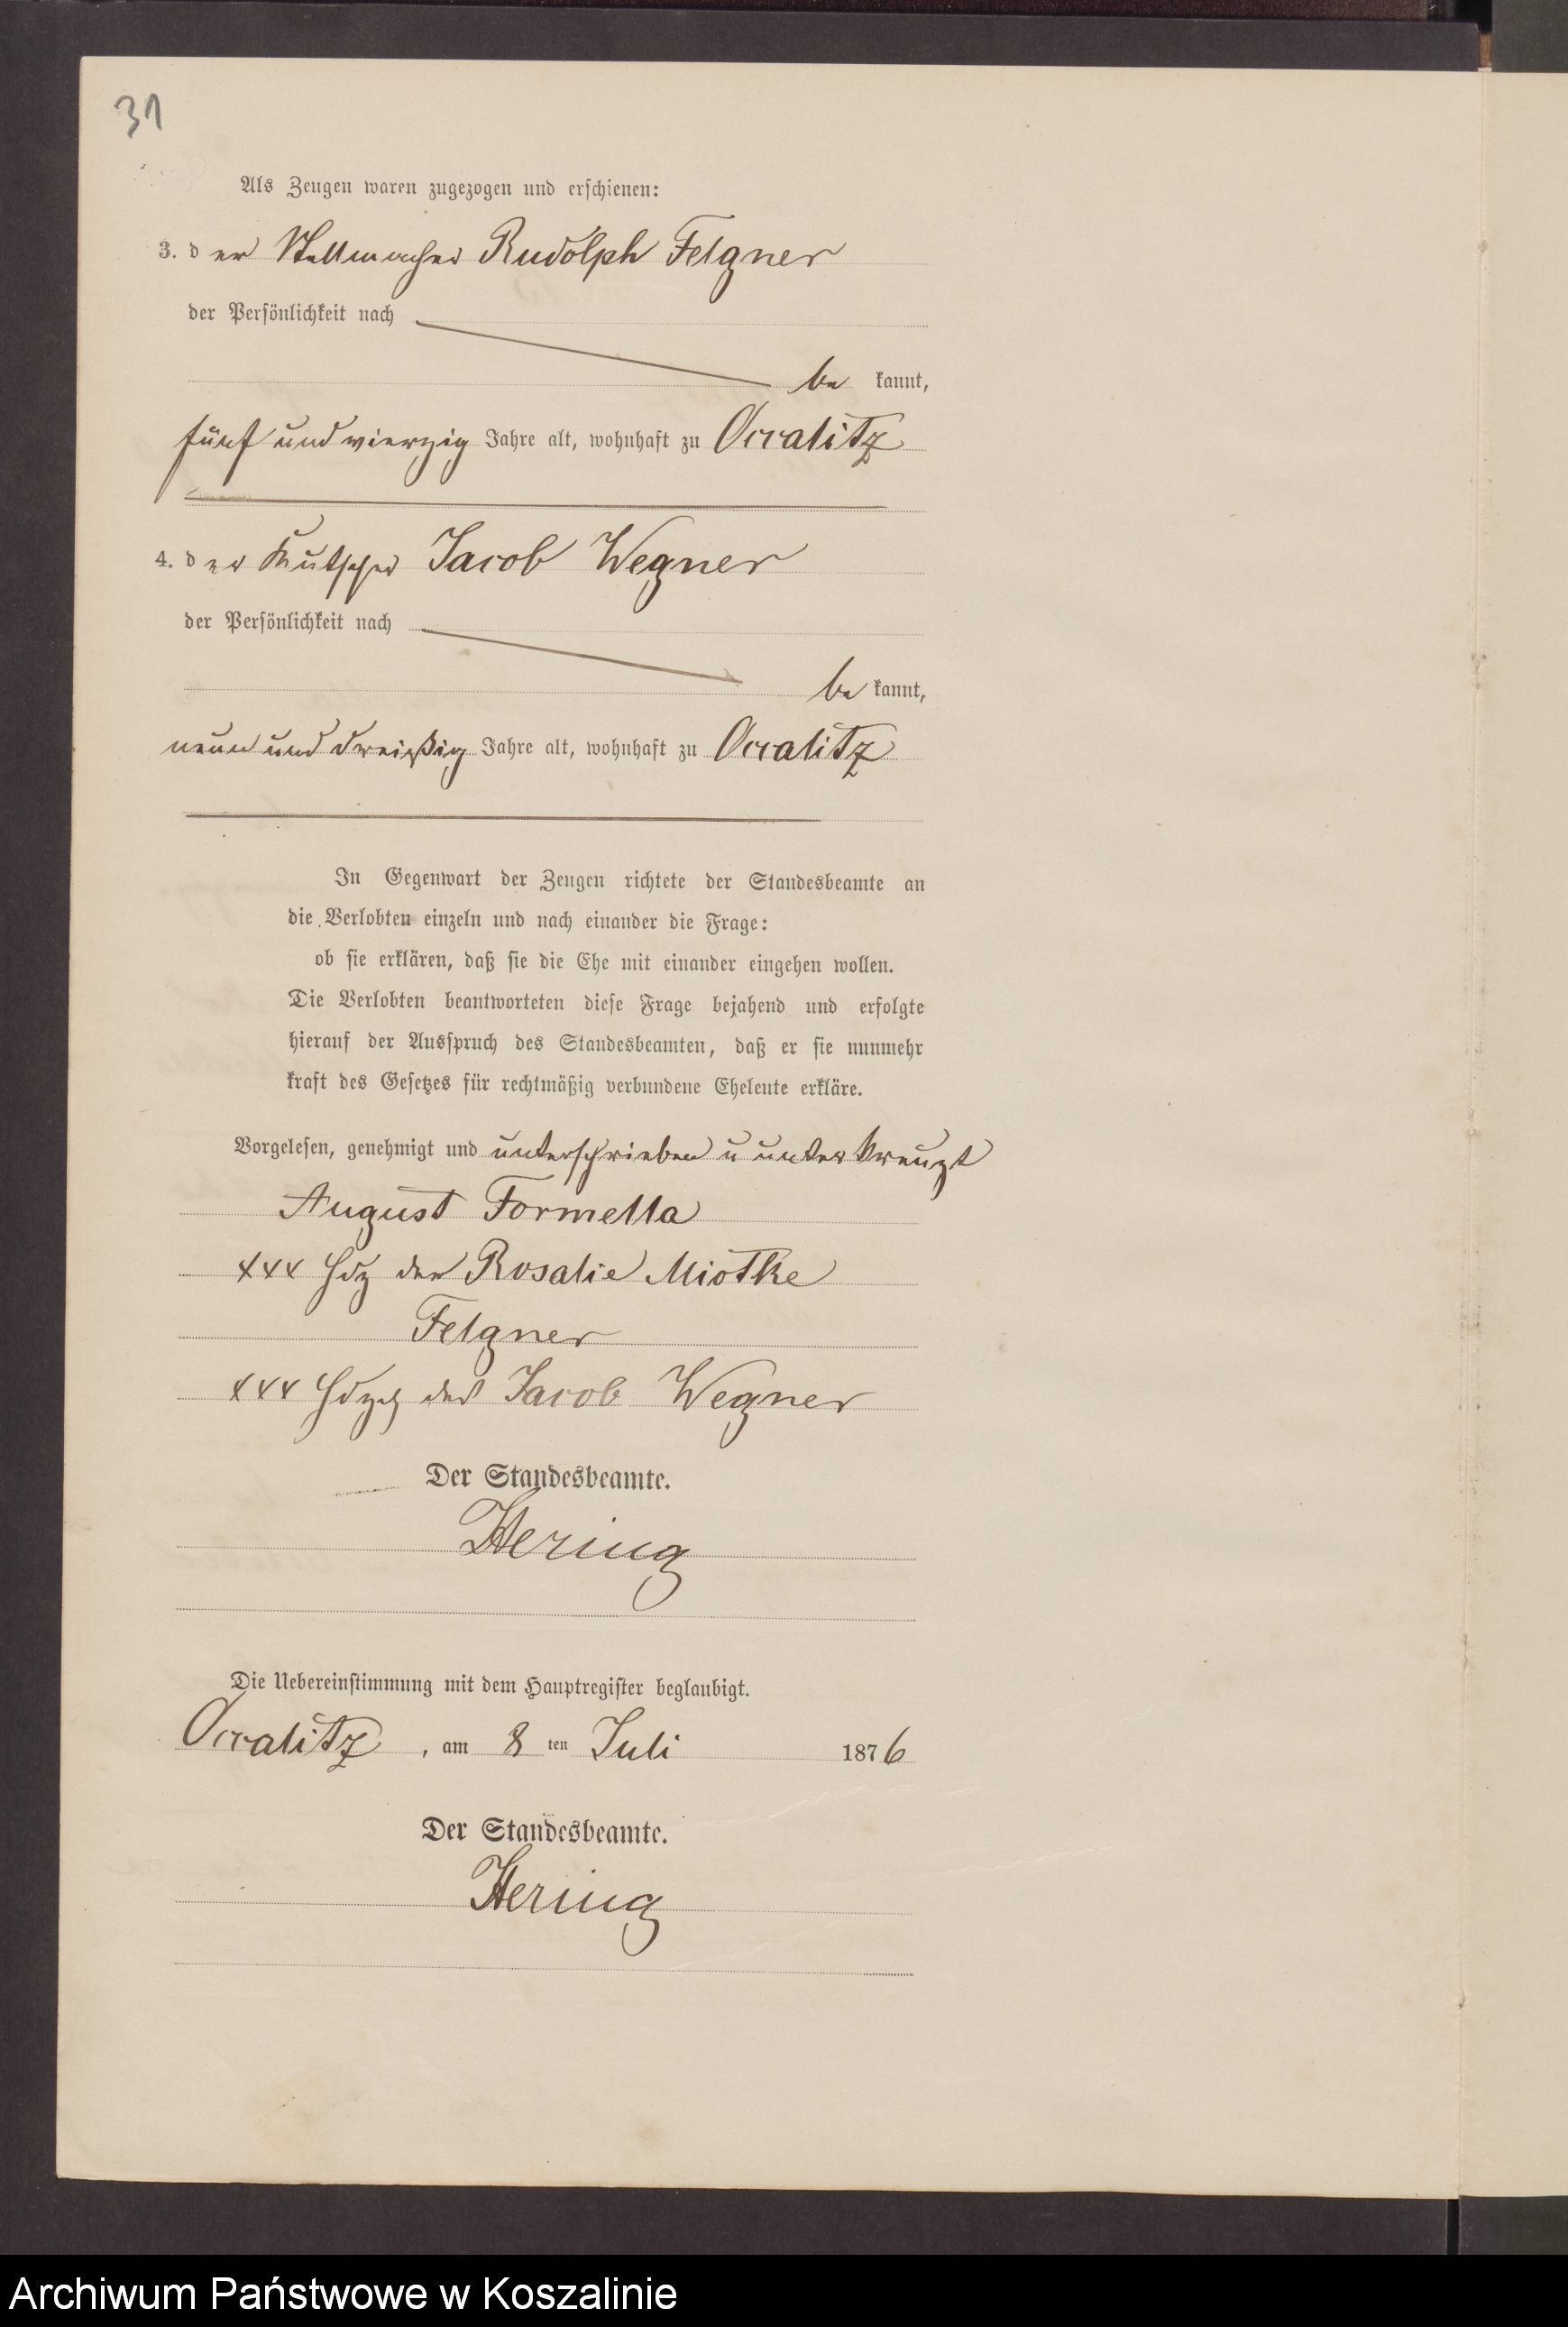 31
Als Zeugen waren zugezogen und erschienen:
3. der Stellmacher Rudolph Felgner
der Persönlichkeit nach
be kannt,
fünf und vierzig Jahre alt, wohnhaft zu Occalitz
4. der Kutscher Jacob Wegner
der Persönlichkeit nach
be kannt,
neun und dreißig Jahre alt, wohnhaft zu Occalitz
In Gegenwart der Zeugen richtete der Standesbeamte an
die Verlobten einzeln und nach einander die Frage:
ob sie erklären, daß sie die Ehe mit einander eingehen wollen.
Die Verlobten beantworteten diese Frage bejahend und erfolgte
hierauf der Ausspruch des Standesbeamten, daß er sie nunmehr
kraft des Gesetzes für rechtmäßig verbundene Eheleute erkläre.
Vorgelesen, genehmigt und unterschrieben u unterkreuzt
August Formella
xxx Hdz der Rosalie Miotke
Felgner
xxx Hdzch des Jacob Wegner
Der Standesbeamte.
Hering
Die Uebereinstimmung mit dem Hauptregister beglaubigt.
Occalitz, am 8 ten Juli 1876
Der Standesbeamte.
Hering
Archiwum Państwowe w Koszalinie